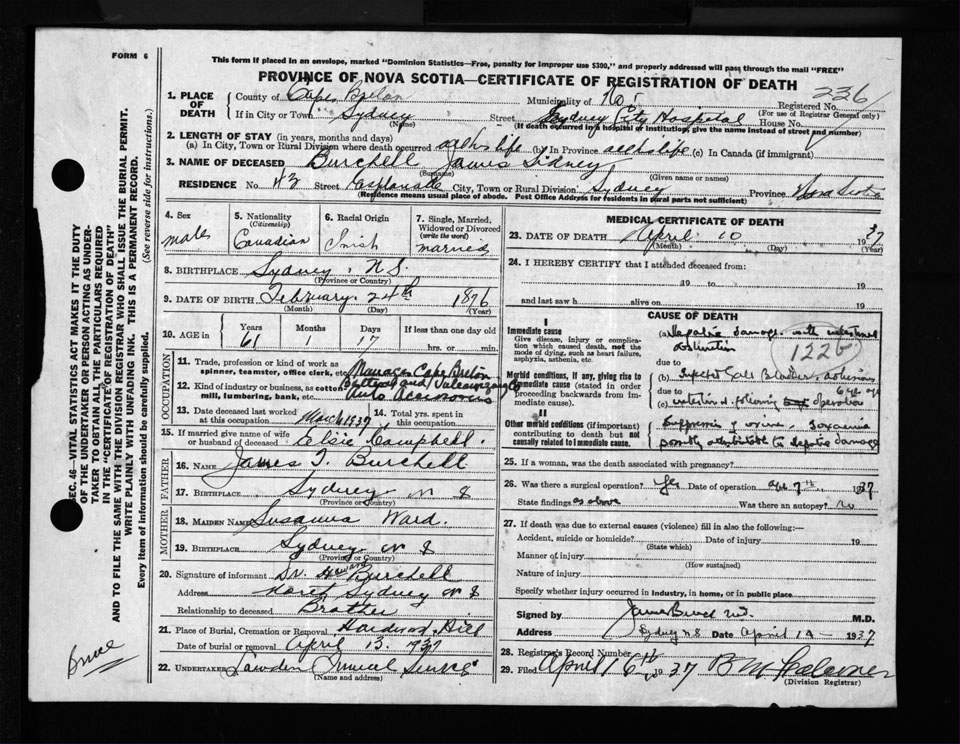 FORM 6
This form if placed in an envelope, marked "Dominion Statistics—Free, penalty for improper use $300," and properly addressed will pass through the mail "FREE"
PROVINCE OF NOVA SCOTIA—CERTIFICATE OF REGISTRATION OF DEATH
1. PLACE OF DEATH County of Cape Breton Municipality of No. Registered No. 236
(For use of Registrar General only)
If in City or Town Sydney Street Sydney City Hospital House No.
(Name) (If death occurred in a hospital or institution, give the name instead of street and number)
2. LENGTH OF STAY (in years, months and days)
(a) In City, Town or Rural Division where death occurred all his life (b) In Province all his life (c) In Canada (if immigrant)
3. NAME OF DECEASED Burchell James Sidney
(Surname) (Given name or names)
RESIDENCE No. 43 Street Esplanade City, Town or Rural Division Sydney Province Nova Scotia
(Residence means usual place of abode. Post Office Address for residents in rural parts not sufficient)
4. Sex male
5. Nationality (Citizenship) Canadian
6. Racial Origin Irish
7. Single, Married, Widowed or Divorced (write the word) married
8. BIRTHPLACE Sydney, N.S.
(Province or Country)
9. DATE OF BIRTH February 24th 1876
(Month) (Day) (Year)
10. AGE in Years 61 Months 1 Days 17 If less than one day old hrs. or min.
OCCUPATION
11. Trade, profession or kind of work as spinner, teamster, office clerk, etc. Manager Cape Breton
12. Kind of industry or business, as cotton mill, lumbering, bank, etc. Battery and Vulcanizing Co Auto Accessories
13. Date deceased last worked at this occupation March 1937
14. Total yrs. spent in this occupation
15. If married give name of wife or husband of deceased Elsie Campbell.
FATHER
16. NAME James T. Burchell
17. BIRTHPLACE Sydney N S
(Province or Country)
MOTHER
18. MAIDEN NAME Susanna Ward.
19. BIRTHPLACE Sydney N S
(Province or Country)
20. Signature of informant Dr. Howard Burchell
Address North Sydney N S
Relationship to deceased Brother
21. Place of Burial, Cremation or Removal Hardwood Hill
Date of burial or removal April 13. 1937
22. UNDERTAKER Funeral Service
(Name and address)
MEDICAL CERTIFICATE OF DEATH
23. DATE OF DEATH April 10 1937
(Month) (Day) (Year)
24. I HEREBY CERTIFY that I attended deceased from
19 to 19
and last saw h alive on 19
CAUSE OF DEATH
I
Immediate cause
Give disease, injury or complication which caused death, not the mode of dying, such as heart failure, asphyxia, asthenia, etc.
(a) Hepatic damage with intestinal obstruction
1226
due to
Morbid conditions, if any, giving rise to immediate cause (stated in order proceeding backwards from immediate cause).
(b) Infected Gall Bladder, adhesions
due to
(c) following operation
II
Other morbid conditions (if important) contributing to death but not causally related to immediate cause.
Suppression of urine,
possibly attributable to hepatic damage
25. If a woman, was the death associated with pregnancy?
26. Was there a surgical operation? Yes Date of operation Apr 7th, 1937
State findings as above Was there an autopsy? no
27. If death was due to external causes (violence) fill in also the following:—
Accident, suicide or homicide? Date of injury 19
(State which)
Manner of injury
(How sustained)
Nature of injury
Specify whether injury occurred in industry, in home, or in public place
Signed by James Bruce M.D. M.D.
Address Sydney N S Date April 14 - 1937
28. Registrar's Record Number
29. Filed April 16th 1937
(Division Registrar)
SEC. 46—VITAL STATISTICS ACT MAKES IT THE DUTY
OF THE UNDERTAKER OR PERSON ACTING AS UNDERTAKER TO OBTAIN ALL THE PARTICULARS REQUIRED
IN THE "CERTIFICATE OF REGISTRATION OF DEATH"
AND TO FILE THE SAME WITH THE DIVISION REGISTRAR WHO SHALL ISSUE THE BURIAL PERMIT.
WRITE PLAINLY WITH UNFADING INK. THIS IS A PERMANENT RECORD.
Every item of Information should be carefully supplied. (See reverse side for instructions.)
Bruce